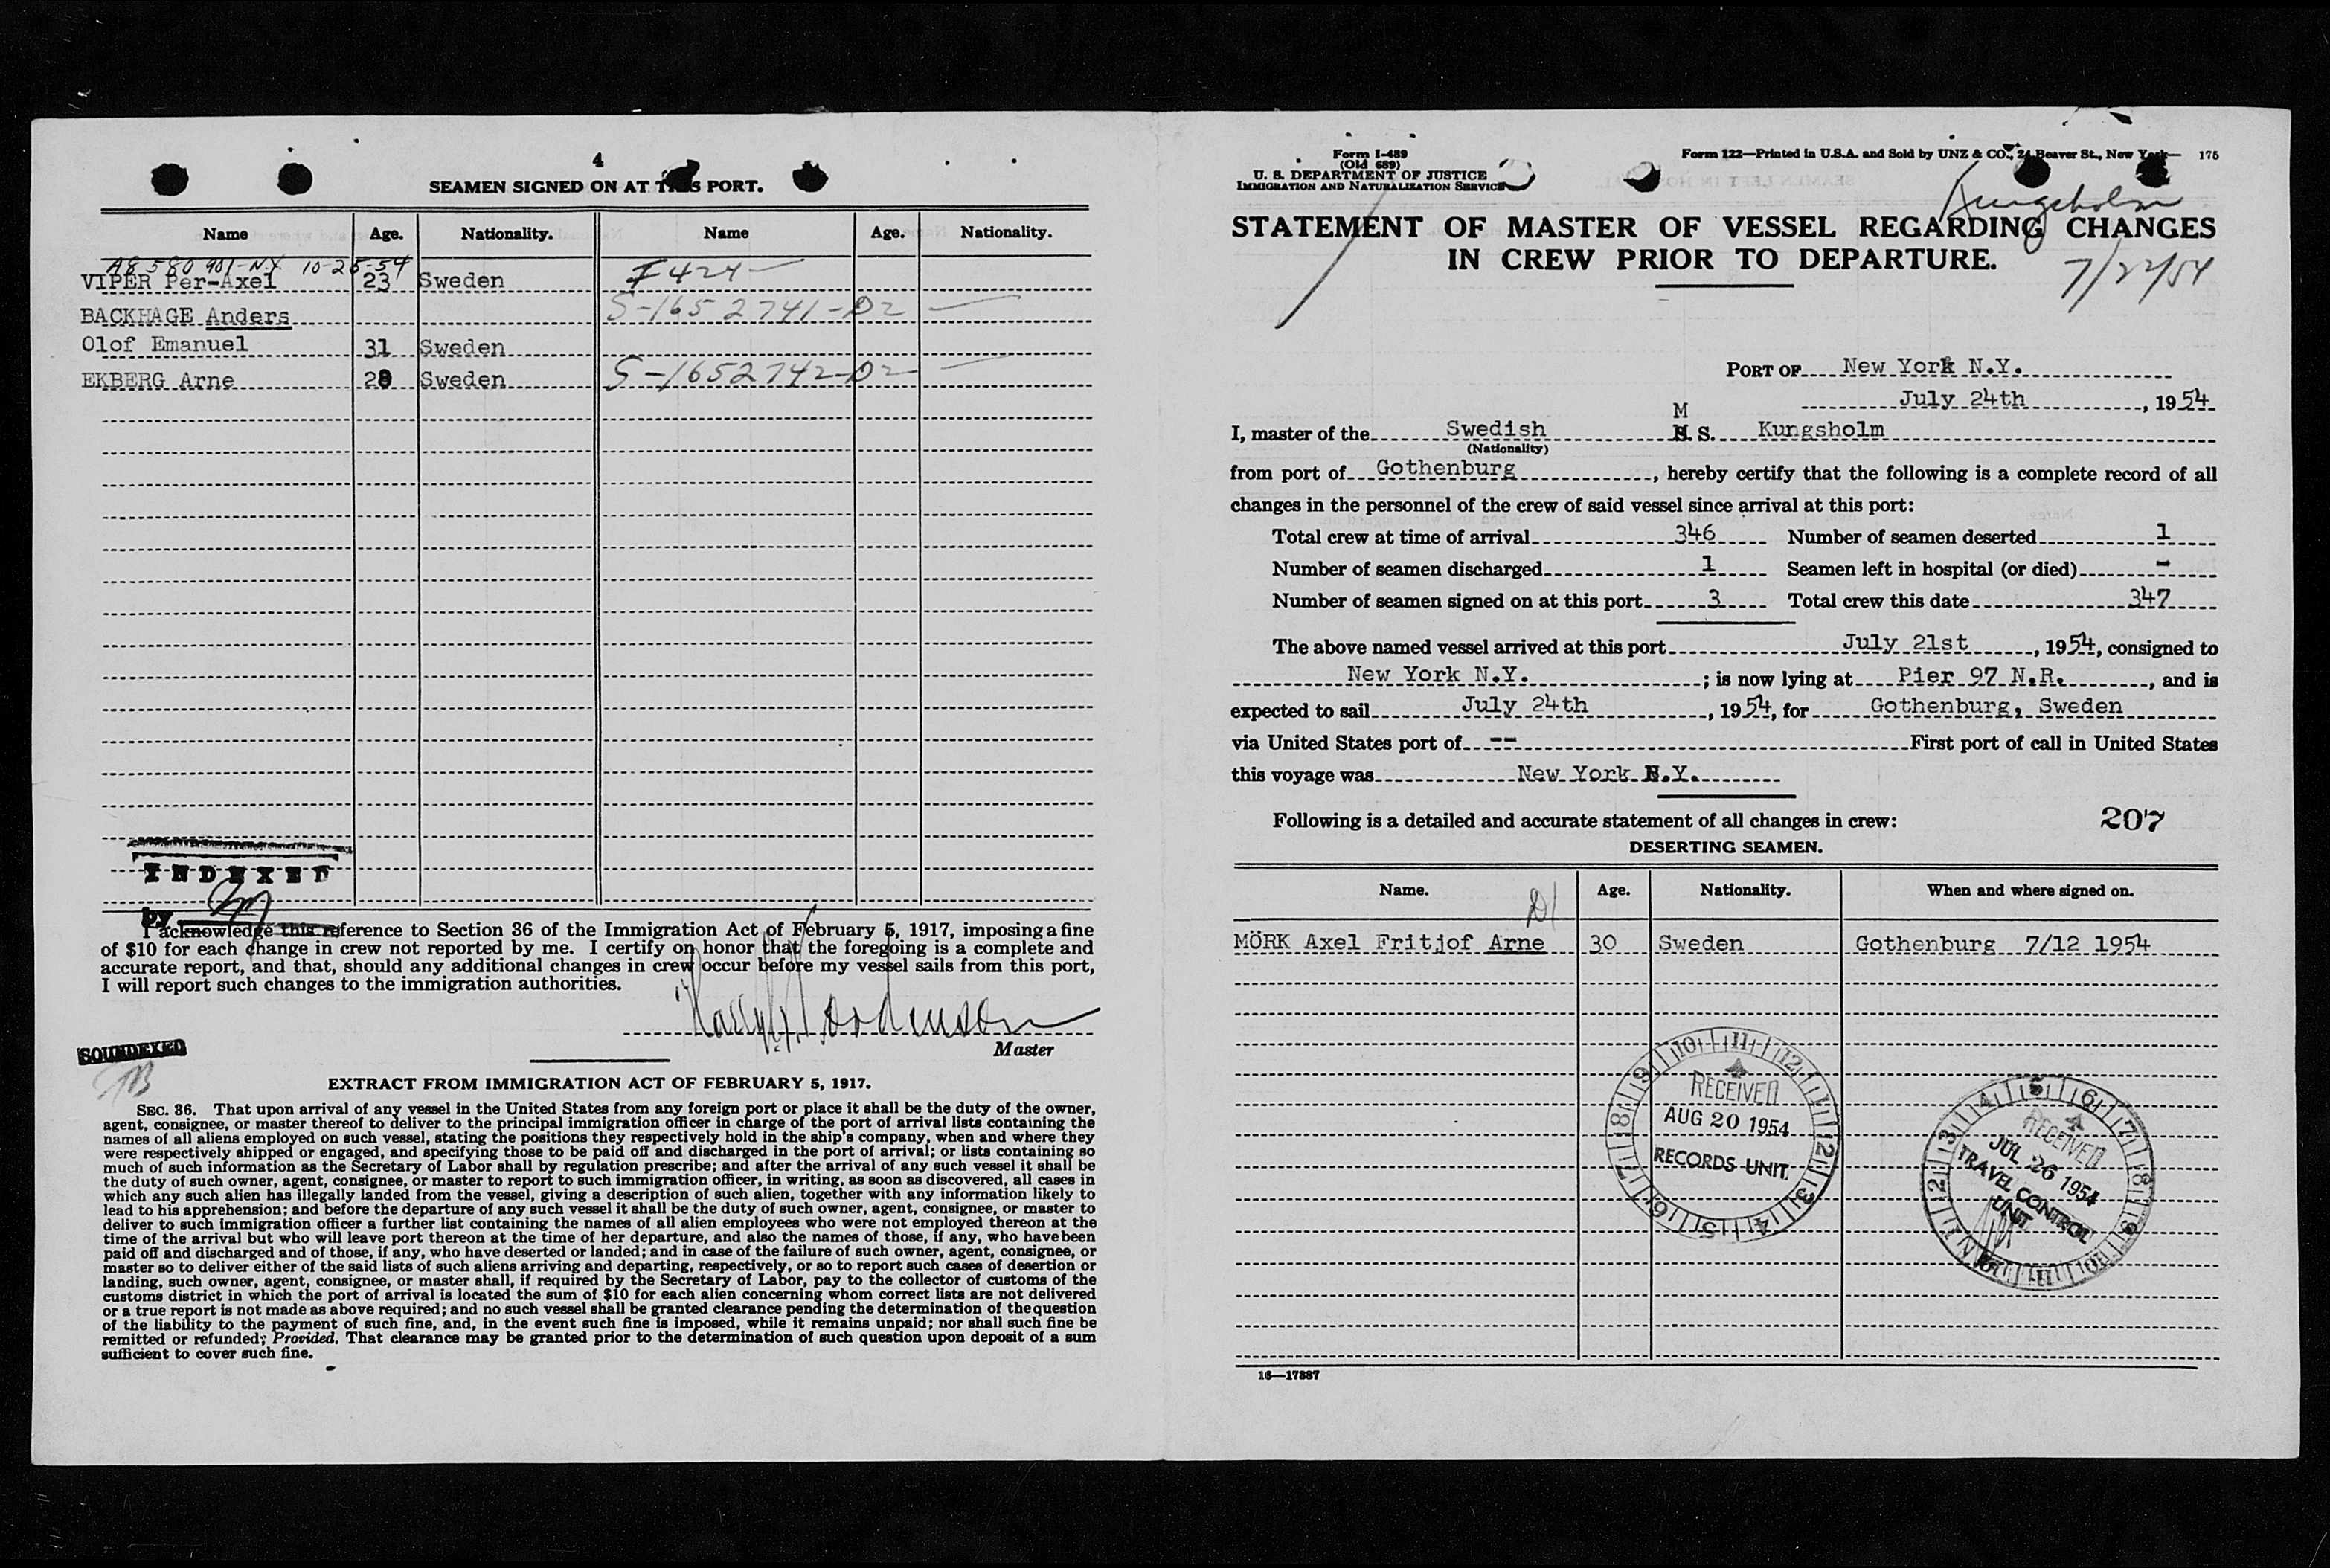 4
SEAMEN SIGNED ON AT THIS PORT.
Name Age. Nationality. Name Age. Nationality.
A8 580 901-N.Y 10-25-54
VIPER Per-Axel 23 Sweden I 424 —
BACKHAGE Anders S-1652741-D2 —
Olof Emanuel 31 Sweden
EKBERG Arne 28 Sweden S-1652742-D2 —
INDEXED
by
I acknowledge this reference to Section 36 of the Immigration Act of February 5, 1917, imposing a fine
of $10 for each change in crew not reported by me. I certify on honor that the foregoing is a complete and
accurate report, and that, should any additional changes in crew occur before my vessel sails from this port,
I will report such changes to the immigration authorities.
Master
SOUNDEXED
EXTRACT FROM IMMIGRATION ACT OF FEBRUARY 5, 1917.
SEC. 36. That upon arrival of any vessel in the United States from any foreign port or place it shall be the duty of the owner,
agent, consignee, or master thereof to deliver to the principal immigration officer in charge of the port of arrival lists containing the
names of all aliens employed on such vessel, stating the positions they respectively hold in the ship's company, when and where they
were respectively shipped or engaged, and specifying those to be paid off and discharged in the port of arrival; or lists containing so
much of such information as the Secretary of Labor shall by regulation prescribe; and after the arrival of any such vessel it shall be
the duty of such owner, agent, consignee, or master to report to such immigration officer, in writing, as soon as discovered, all cases in
which any such alien has illegally landed from the vessel, giving a description of such alien, together with any information likely to
lead to his apprehension; and before the departure of any such vessel it shall be the duty of such owner, agent, consignee, or master to
deliver to such immigration officer a further list containing the names of all alien employees who were not employed thereon at the
time of the arrival but who will leave port thereon at the time of her departure, and also the names of those, if any, who have been
paid off and discharged and of those, if any, who have deserted or landed; and in case of the failure of such owner, agent, consignee, or
master so to deliver either of the said lists of such aliens arriving and departing, respectively, or so to report such cases of desertion or
landing, such owner, agent, consignee, or master shall, if required by the Secretary of Labor, pay to the collector of customs of the
customs district in which the port of arrival is located the sum of $10 for each alien concerning whom correct lists are not delivered
or a true report is not made as above required; and no such vessel shall be granted clearance pending the determination of the question
of the liability to the payment of such fine, and, in the event such fine is imposed, while it remains unpaid; nor shall such fine be
remitted or refunded: Provided, That clearance may be granted prior to the determination of such question upon deposit of a sum
sufficient to cover such fine.
Form I-489
(Old 689)
U. S. DEPARTMENT OF JUSTICE
IMMIGRATION AND NATURALIZATION SERVICE
Form 122—Printed in U.S.A. and Sold by UNZ & CO., 24 Beaver St., New York— 175
Kungsholm
STATEMENT OF MASTER OF VESSEL REGARDING CHANGES
IN CREW PRIOR TO DEPARTURE.
7/22/54
PORT OF New York N.Y.
July 24th, 1954
M
I, master of the Swedish S. S. Kungsholm
(Nationality)
from port of Gothenburg, hereby certify that the following is a complete record of all
changes in the personnel of the crew of said vessel since arrival at this port:
Total crew at time of arrival 346 Number of seamen deserted 1
Number of seamen discharged 1 Seamen left in hospital (or died) -
Number of seamen signed on at this port 3 Total crew this date 347
The above named vessel arrived at this port July 21st, 1954, consigned to
New York N.Y. ; is now lying at Pier 97 N.R., and is
expected to sail July 24th, 1954, for Gothenburg, Sweden
via United States port of -- First port of call in United States
this voyage was New York N.Y.
Following is a detailed and accurate statement of all changes in crew: 207
DESERTING SEAMEN.
Name. Age. Nationality. When and where signed on.
D1
MÖRK Axel Fritjof Arne 30 Sweden Gothenburg 7/12 1954
RECEIVED
AUG 20 1954
RECORDS UNIT
RECEIVED
JUL 26 1954
TRAVEL CONTROL
UNIT
16—17887